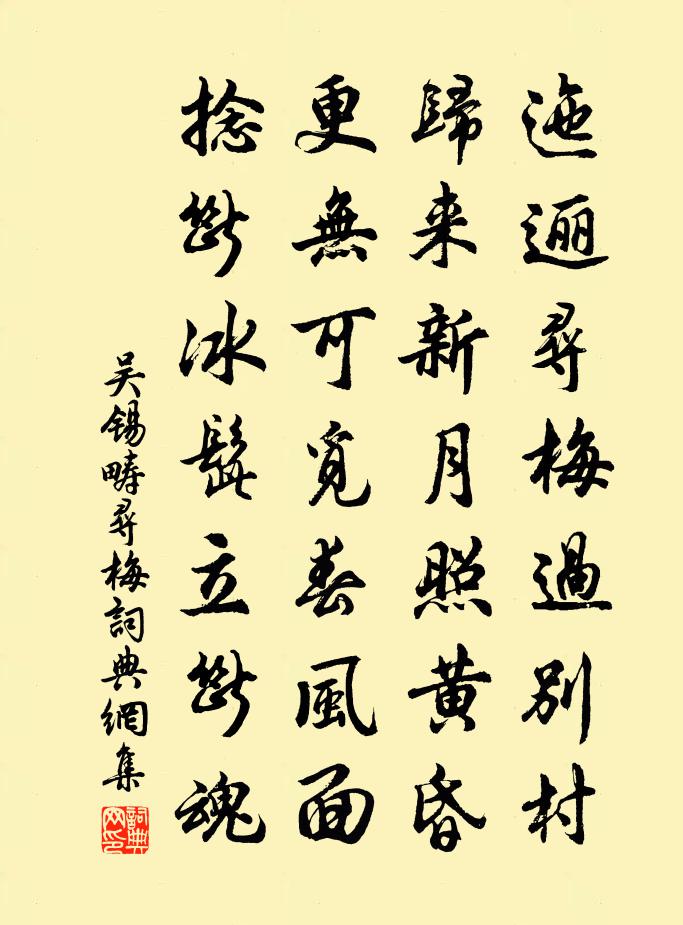 迤逦尋梅過別村
歸来新月照黄昏
更無可覓春風面
捻斷冰髭立斷魂
吴锡畴尋梅詞典網集
詞典網印